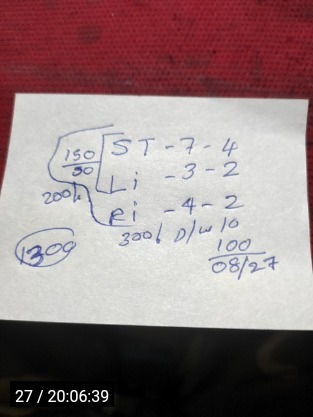 150
50
ST - 7 - 4
Li - 3 - 2
200/.
Ri - 4 - 2
300/. D/W 10
1300
100
08/27
27 / 20:06:39